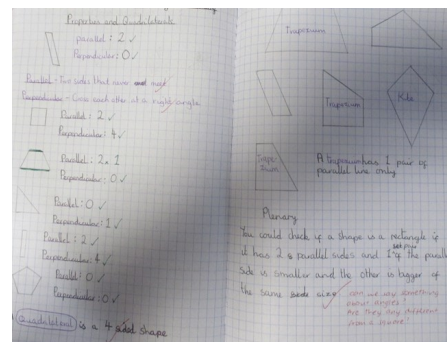 Properties and Quadrilaterals
parallel : 2 ✓
Perpendicular : 0 ✓
Parallel - Two sides that never meet
Perpendicular - Cross each other at a right angle
Parallel : 2 ✓
Perpendicular : 4 ✓
Parallel : 2x 1
Perpendicular : 0 ✓
Parallel : 0 ✓
Perpendicular : 1 ✓
Parallel : 2 ✓
Perpendicular : 4 ✓
Parallel : 0 ✓
Perpendicular : 0 ✓
Quadrilateral is a 4 sided shape
Trapezium
Trapezium
Kite
Trape
zium
A Trapezium has 1 pair of
parallel line only
Plenary
You could check if a shape is a rectangle if
it has 2 parallel sides and 1 of the parallel
side is smaller and the other is bigger of
the same size
can we say something
about angles!
Are they any different
from a square!